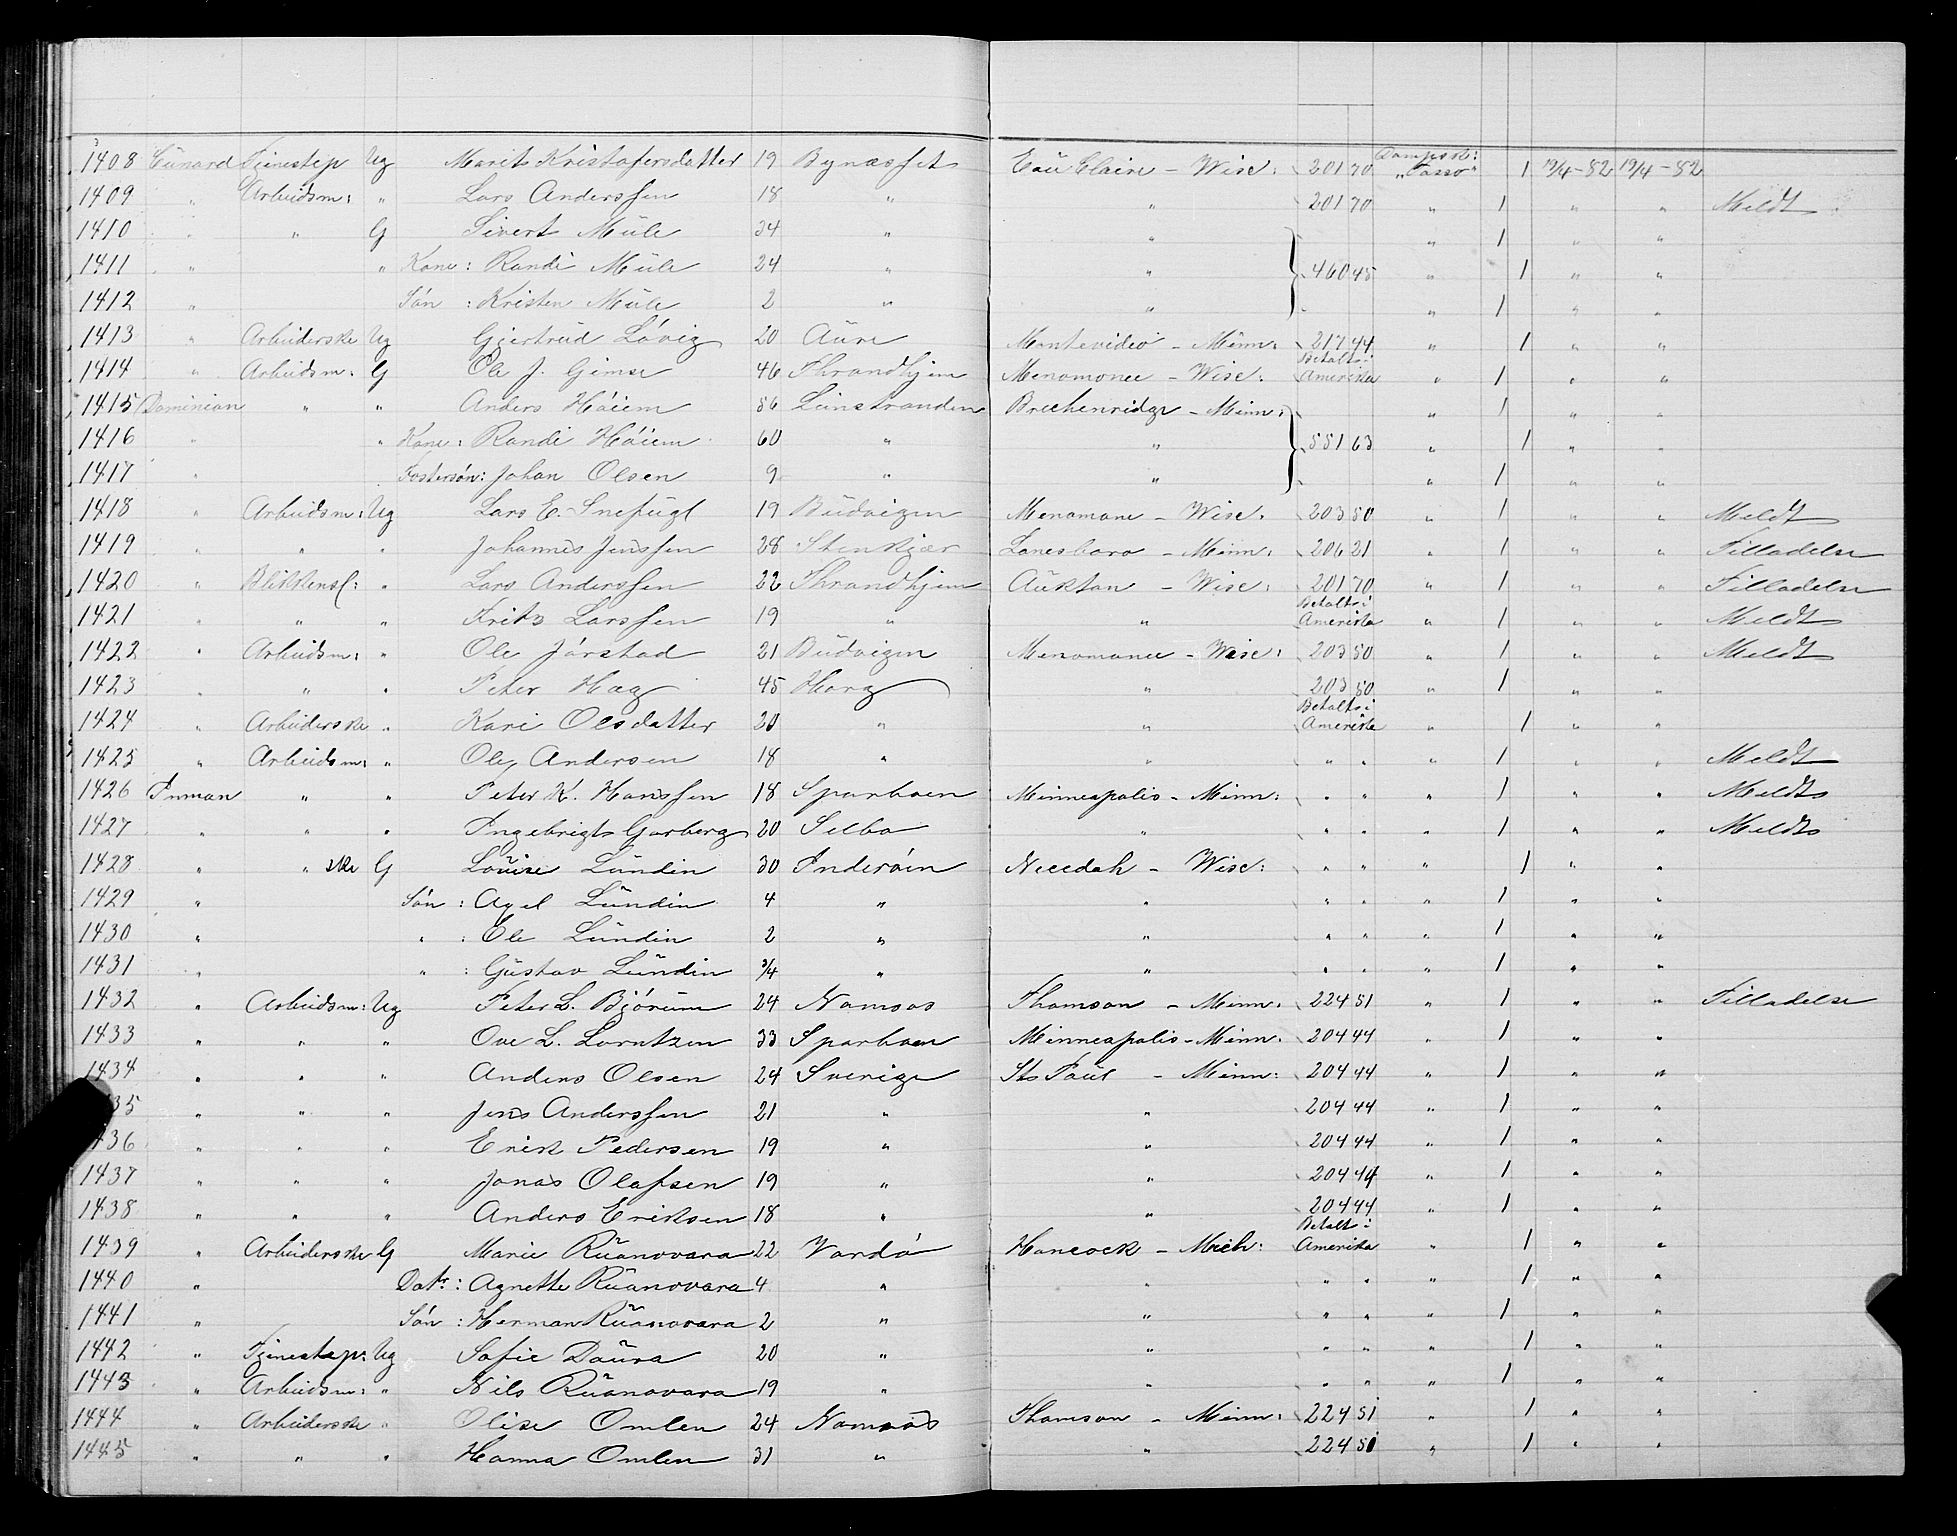 1408 Cunard Tjenestep Ug Marit Kristofersdatter 19 Bynæsset Eau Claire – Wisc: 201 70 Dampsk: „Tasso" 1 19/4–82 19/4–82
1409 " Arbeidsm: " Lars Anderssen 18 " " 201 70 " 1 " " Meldt
1410 " " G Sivert Mule 34 " " " 1 " "
1411 " " Kone: Randi Mule 24 " " 460 45 " 1 " "
1412 " Søn: Kristen Mule 2 " " " 1 " "
1413 " Arbeiderske Ug Gjertrud Løvig 20 Aure Montevideo – Minn: 217 44 " 1 " "
1414 " Arbeidsm: G Ole J. Gimse 46 Throndhjem Menomonee – Wisc: Betalt i Amerika " 1 " "
1415 Dominion " " Anders Høiem 56 Leinstranden Brechenridge – Minn: " 1 " "
1416 " " Kone: Randi Høiem 60 " " 551 63 " 1 " "
1417 " Fostersøn: Johan Olsen 9 " " " 1 " "
1418 " Arbeidsm: Ug Lars E. Snefugl 19 Budvigen Menomone – Wisc. 203 50 " 1 " " Meldt
1419 " " " Johannes Jenssen 28 Stenkjær Lanesboro – Minn: 206 21 " 1 " " Tilladelse
1420 " Blikkensl: " Lars Anderssen 22 Throndhjem Auktan – Wisc: 201 70 " 1 " " Tilladelse
1421 " " " Fritz Larssen 19 " " Betalt i Amerika " 1 " " Meldt
1422 " Arbeidsm: " Ole Jørstad 21 Budvigen Menomonee – Wisc: 203 50 " 1 " " Meldt
1423 " " " Peter Hag 45 Horg " 203 50 " 1 " "
1424 " Arbeiderske " Kari Olsdatter 20 " " Betalt i Amerika " 1 " "
1425 " Arbeidsm: " Ole Andersen 18 " " " " " 1 " " Meldt
1426 Inman " " Peter K. Hanssen 18 Sparboen Minneapolis – Minn: " " " 1 " " Meldt
1427 " " " Ingebrigt Garberg 20 Selbo " " " " 1 " " Meldt
1428 " " ske G Louise Lundin 30 Inderøen Necedah – Wisc: " " " 1 " "
1429 " Søn: Axel Lundin 4 " " " " " 1 " "
1430 " " : Ole Lundin 2 " " " " " 1 " "
1431 " " : Gustav Lundin 3/4 " " " " " 1 " "
1432 " Arbeidsm: Ug Peter L. Bjørum 24 Namsos Thomson – Minn: 224 51 " 1 " " Tilladelse
1433 " " " Ove L. Lorntzen 33 Sparboen Minneapolis – Minn: 204 44 " 1 " "
1434 " " " Anders Olsen 24 Sverige St Paul – Minn: 204 44 " 1 " "
35 " " " Jens Anderssen 21 " " 204 44 " 1 " "
436 " " " Erik Pedersen 19 " " 204 44 " 1 " "
1437 " " " Jonas Olafsen 19 " " 204 44 " 1 " "
1438 " " " Anders Eriksen 18 " " 204 44 " 1 " "
1439 " Arbeiderske G Marie Ruonovara 22 Vardø Hancock – Mich: Betalt i Amerika " 1 " "
1440 " Datr: Agnette Ruonovara 4 " " " " " 1 " "
1441 " Søn: Herman Ruonovara 2 " " " " " 1 " "
1442 " Tjenestep: Ug Sofie Daura 20 " " " " " 1 " "
1443 " Arbeidsm: " Nils Ruonovara 19 " " " " " 1 " "
1444 " Arbeiderske " Olise Omlen 24 Namsos Thomson – Minn: 224 51 " 1 " "
1445 " " " Hanna Omlen 31 " " 224 51 " 1 " "